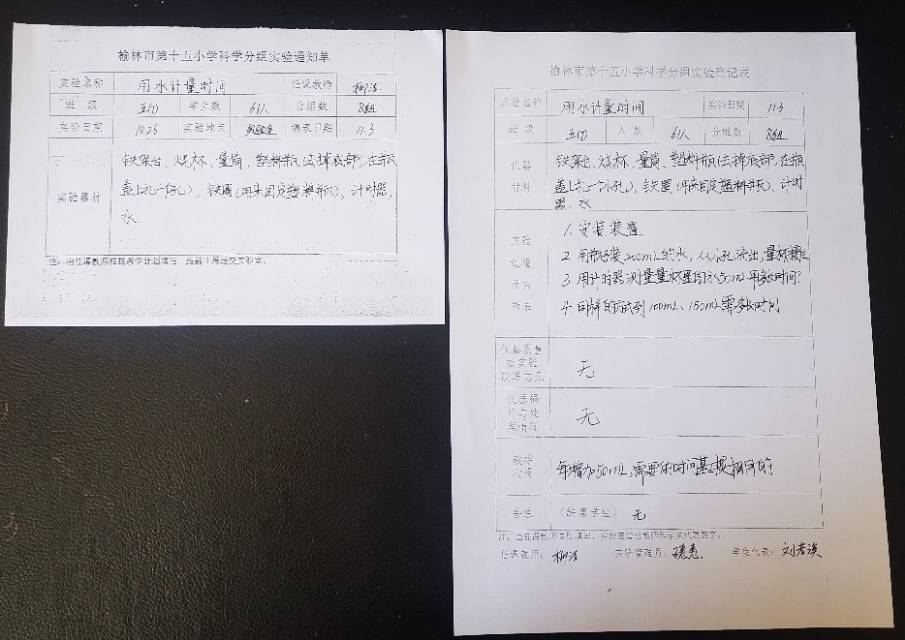 榆林市第十五小学科学分组实验通知单
实验名称 用水计量时间 任课教师
班级 五(1) 学生数 61人 分组数 8组
实验日期 10.25 实验地点 实验室 填表日期 11.3
实验器材
铁架台、烧杯、量筒、塑料瓶(去掉底部,在瓶
盖上扎一个小孔)、铁圈(用来固定塑料瓶)、计时器、
水
注:由任课教师根据教学计划填写,提前1周送交实验室。
榆林市第十五小学科学分组实验登记表
实验名称 用水计量时间 实验日期 11.3
班级 五(1) 人数 61人 分组数 8组
仪器
材料
铁架台、烧杯、量筒、塑料瓶(去掉底部,在瓶
盖上扎一个小孔)、铁圈(用来固定塑料瓶)、计时
器、水
实验
1. 安装装置
2. 用瓶装200mL的水,从小孔流出,量杯接住
3. 用计时器测量量杯里的水50mL用多长时间?
4. 同样的测到100mL、150mL需多长时间
仪器质量
无
仪器损
无
每增加50mL,需要的时间基本是相同的
备注 (缺席学生) 无
任课教师: 实验管理员: 学生代表: